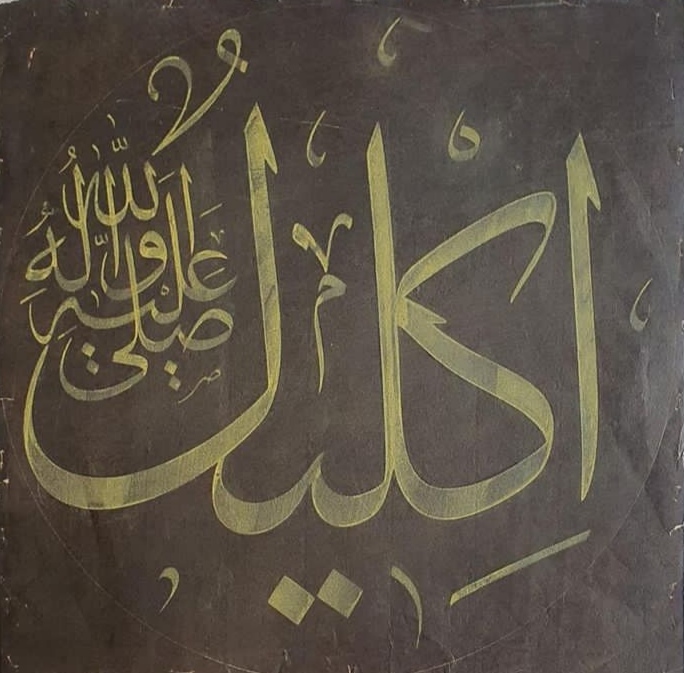 إكليل
صلى الله عليه وآله